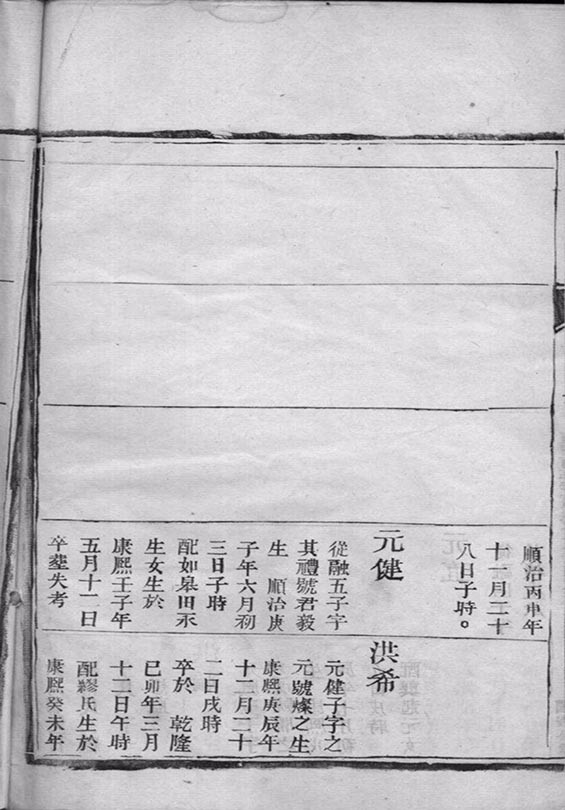 順治丙申年
十一月二十
八日子時。
元健
從融五子字
其禮號君毅
生 順治庚
子年六月初
三日子時
配如皋田永
生女生於
康熙壬子年
五月十二日
卒塟失考
洪希
元健子字之
元號燦之生
康熙庚辰年
十二月二十
二日戌時
卒於 乾隆
己卯年三月
十二日午時
配繆氏生於
康熙癸未年